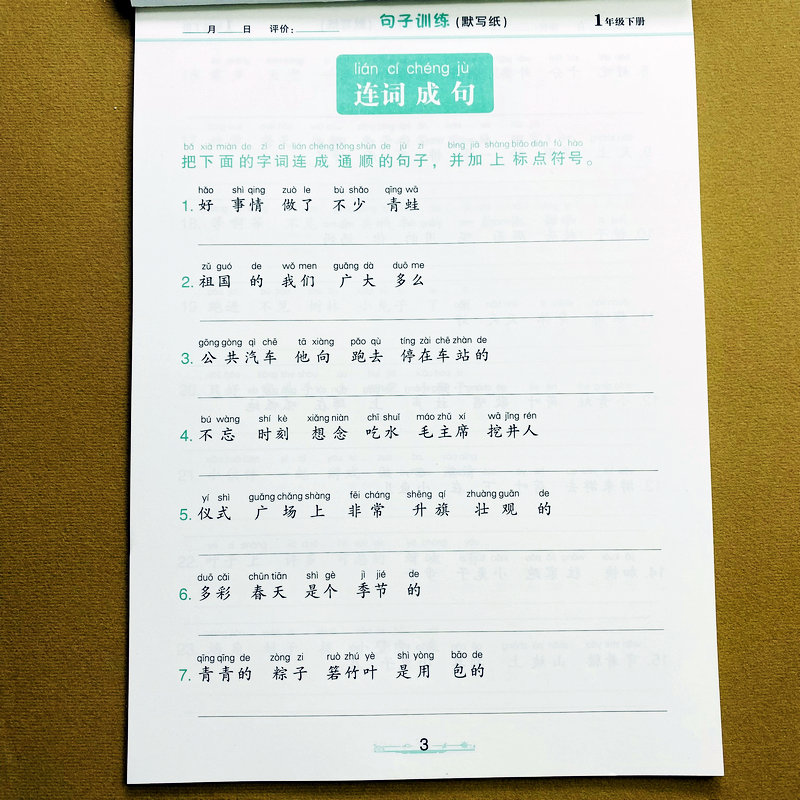 ___月___日 评价:________ 句子训练(默写纸) 1年级下册
lián cí chéng jù
连词成句
bǎ xià miàn de zì cí lián chéng tōng shùn de jù zi bìng jiā shàng biāo diǎn fú hào
把下面的字词连成通顺的句子,并加上标点符号。
hǎo shì qing zuò le bù shǎo qīng wā
1. 好 事情 做了 不少 青蛙
zǔ guó de wǒ men guǎng dà duō me
2. 祖国 的 我们 广大 多么
gōng gòng qì chē tā xiàng pǎo qù tíng zài chē zhàn de
3. 公共汽车 他向 跑去 停在车站的
bú wàng shí kè xiǎng niàn chī shuǐ máo zhǔ xí wā jǐng rén
4. 不忘 时刻 想念 吃水 毛主席 挖井人
yí shì guǎng chǎng shàng fēi cháng shēng qí zhuàng guān de
5. 仪式 广场上 非常 升旗 壮观 的
duō cǎi chūn tiān shì gè jì jié de
6. 多彩 春天 是个 季节 的
qīng qīng de zòng zi ruò zhú yè shì yòng bāo de
7. 青青的 粽子 箬竹叶 是用 包的
3